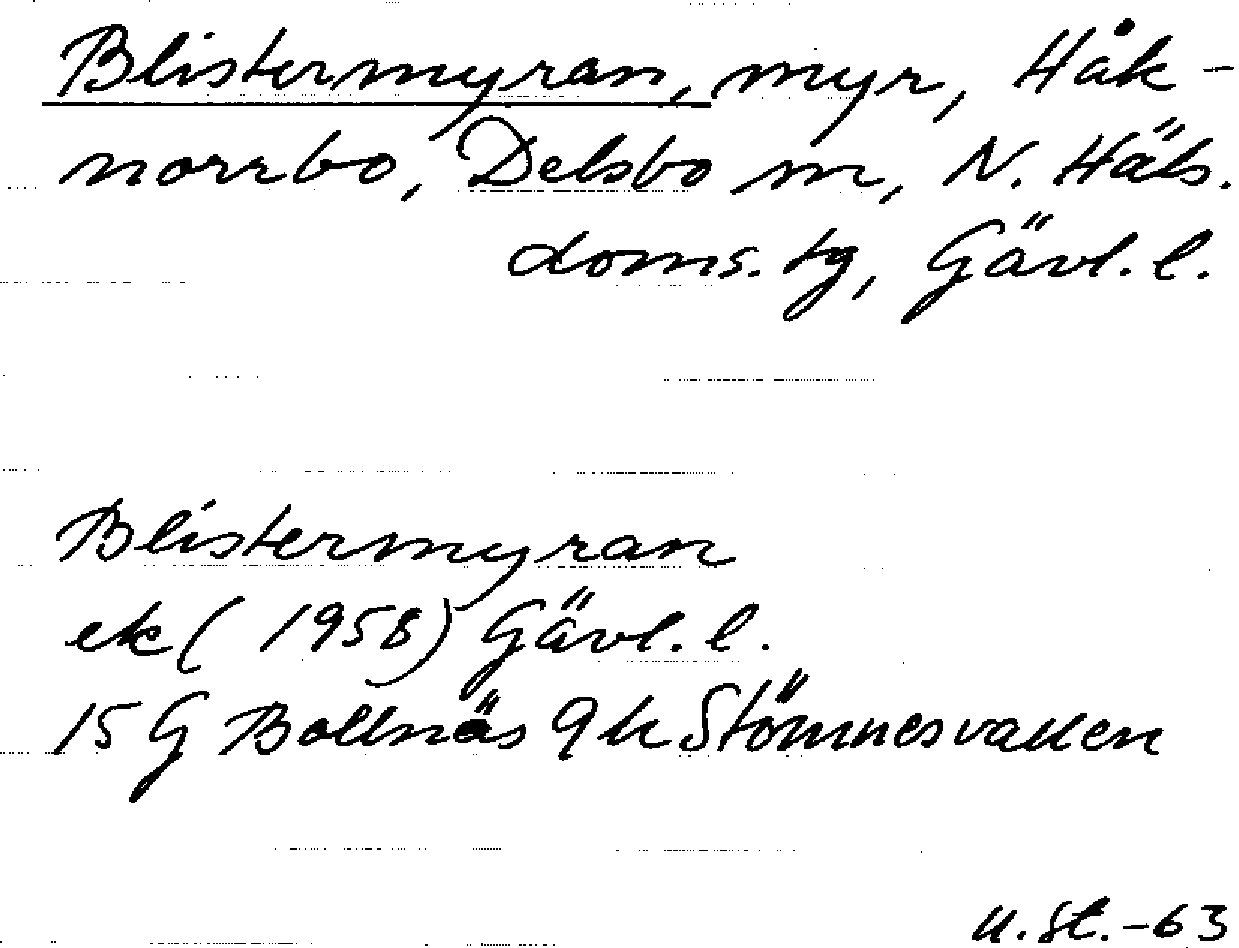 Blistermyran, myr, Håk-
norrbo, Delsbo sn, N. Häls.
doms. tg, Gävl. l.
Blistermyran
ek (1958) Gävl. l.
15 G Bollnäs 9 h Stömnesvallen
U. St. -63